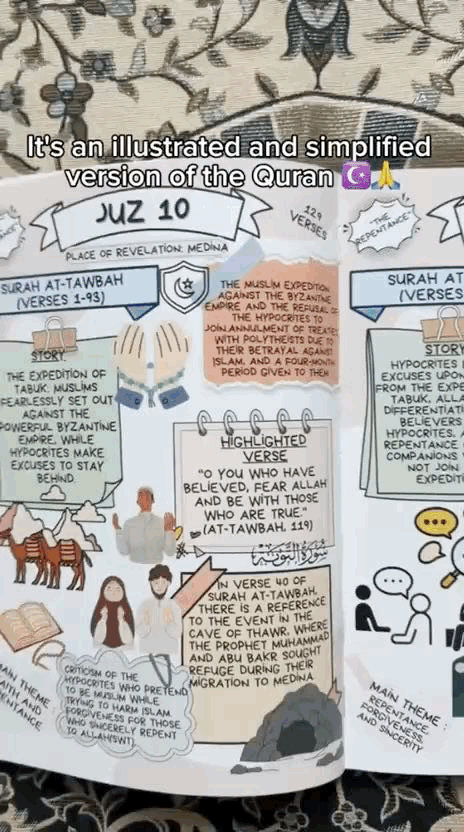 It's an illustrated and simplified
version of the Quran ☪️🙏
JUZ 10
129
VERSES
PLACE OF REVELATION: MEDINA
SURAH AT-TAWBAH
(VERSES 1-93)
STORY
THE EXPEDITION OF
TABUK: MUSLIMS
FEARLESSLY SET OUT
AGAINST THE
POWERFUL BYZANTINE
EMPIRE, WHILE
HYPOCRITES MAKE
EXCUSES TO STAY
BEHIND.
THE MUSLIM EXPEDITION
AGAINST THE BYZANTINE
EMPIRE AND THE REFUSAL OF
THE HYPOCRITES TO
JOIN.ANNULMENT OF TREATIES
WITH POLYTHEISTS DUE TO
THEIR BETRAYAL AGAINST
ISLAM, AND A FOUR-MONTH
PERIOD GIVEN TO THEM
HIGHLIGHTED
VERSE
"O YOU WHO HAVE
BELIEVED, FEAR ALLAH
AND BE WITH THOSE
WHO ARE TRUE."
(AT-TAWBAH, 119)
سُورَةُ التَّوْبَةِ
IN VERSE 40 OF
SURAH AT-TAWBAH,
THERE IS A REFERENCE
TO THE EVENT IN THE
CAVE OF THAWR, WHERE
THE PROPHET MUHAMMAD
AND ABU BAKR SOUGHT
REFUGE DURING THEIR
MIGRATION TO MEDINA
MAIN THEME
FAITH AND
REPENTANCE
CRITICISM OF THE
HYPOCRITES WHO PRETEND
TO BE MUSLIM WHILE
TRYING TO HARM ISLAM.
FORGIVENESS FOR THOSE
WHO SINCERELY REPENT
TO ALLAH(SWT).
"THE
REPENTANCE"
SURAH AT
(VERSES
STORY
HYPOCRITES
EXCUSES UPON
FROM THE EXPE
TABUK, ALLA
DIFFERENTIAT
BELIEVERS
HYPOCRITES,
REPENTANCE
COMPANIONS
NOT JOIN
EXPEDIT
MAIN THEME :
REPENTANCE,
FORGIVENESS,
AND SINCERITY